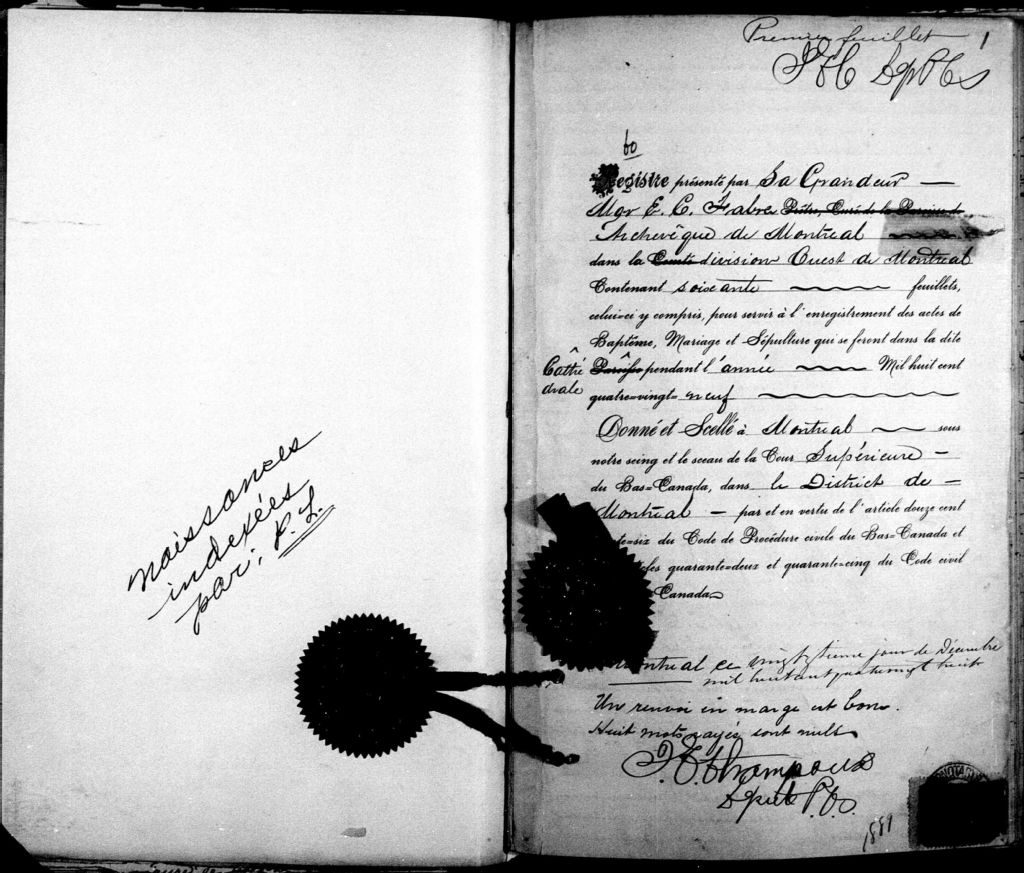 naissances
indexées
par: P. L.
Premier feuillet 1
60
Registre présenté par Sa Grandeur
Mgr E. C. Fabre Prêtre, Curé de la Paroisse de
Archevêque de Montreal
dans la Comté division Ouest de Montreal
Contenant soixante feuillets,
celui-ci y compris, pour servir à l'enregistrement des actes de
Baptême, Mariage et Sépulture qui se feront dans la dite
Cathé
drale
Paroisse pendant l'année Mil huit cent
quatre-vingt-neuf
Donné et Scellé à Montreal sous
notre seing et le sceau de la Cour Supérieure
du Bas-Canada, dans le District de
Montreal par et en vertu de l'article douze cent
-six du Code de Procédure civile du Bas-Canada et
quarante-deux et quarante-cinq du Code civil
Canada
Montreal ce vingtième jour de Décembre
mil huit cent quatrevingt huit
Un renvoi en marge est bon.
Huit mots rayés sont nuls
Député P. C. S.